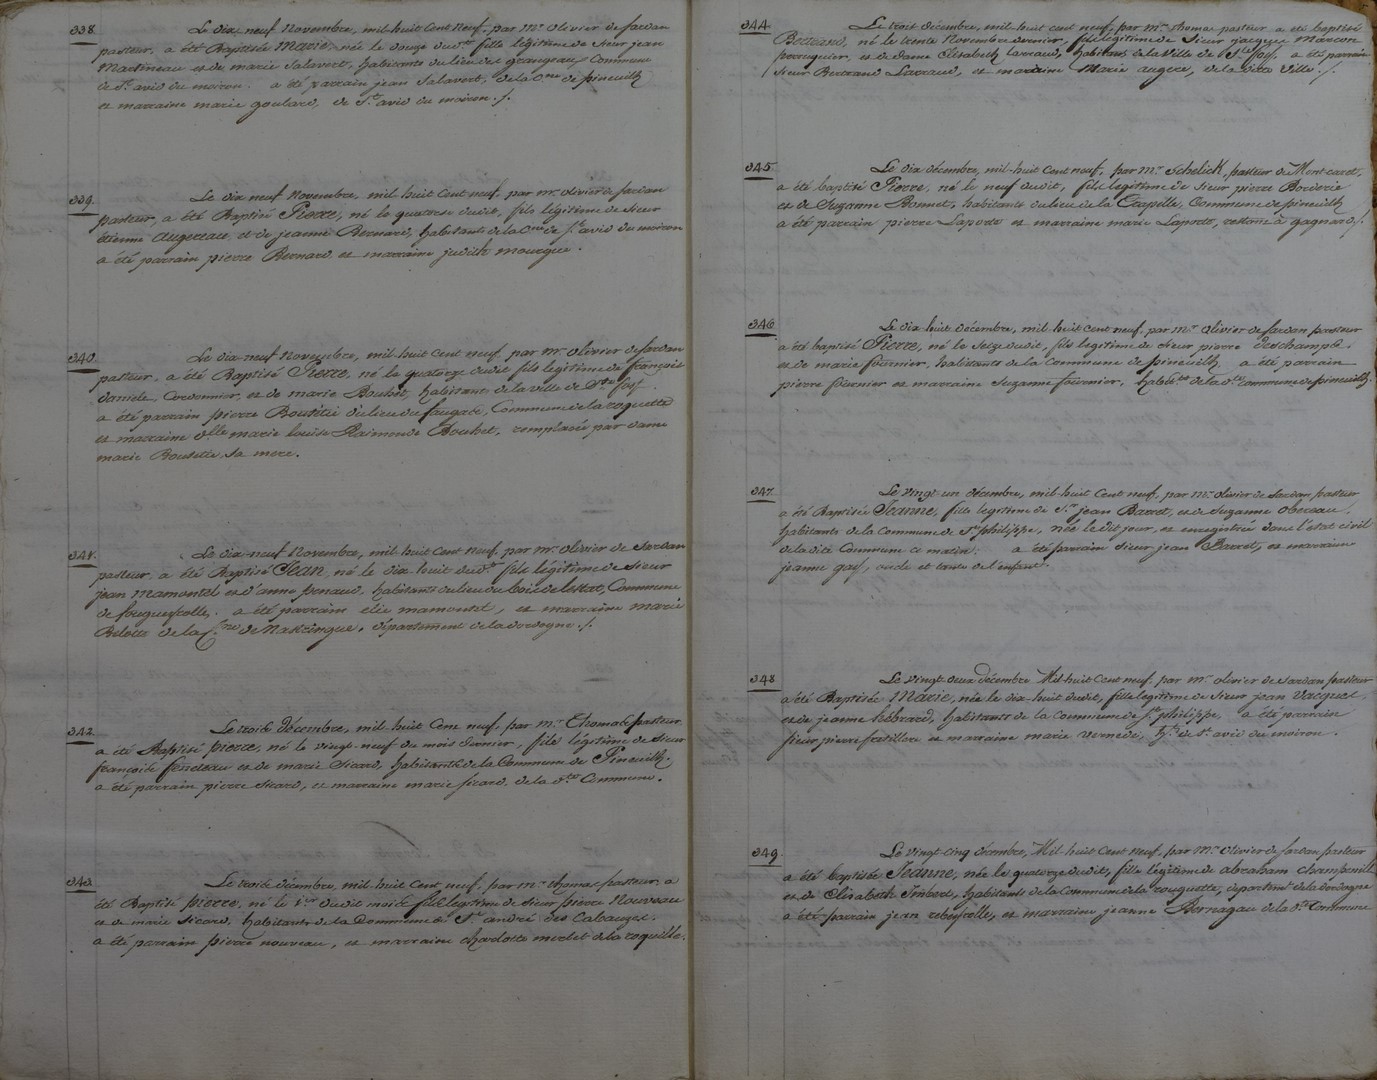 338.
Le dix neuf Novembre, mil-huit Cent Neuf. par Mr. Olivier de Sardan
pasteur, a été Baptisée Marie, née le Douze dudit fille légitime de Sieur jean
Martineau et de marie Salavert, habitants du lieu des grangeau Commune
de St. avid du moiron. a été parrain jean Salavert, de la Cne de pineuilh
et marraine marie goulard, de St. avid du moiron./.
339.
Le dix neuf Novembre, mil huit Cent neuf. par mr. olivier de sardan
pasteur, a été Baptisé Pierre, né le quatorze dudit, fils légitime de Sieur
étienne augereau, et de jeanne Bernard, habitants de la Cne de St. avid du moiron
a été parrain pierre Bernard et marraine judith mourgue.
340.
Le dix neuf Novembre, mil huit Cent neuf, par mr. olivier de Sardan
pasteur, a été Baptisé Pierre, né le quatorze dudit fils légitime de françois
daniele, Cordonnier, et de marie Bouhet, habitant de la ville de Ste foy.
a été parrain pierre du lieu de Commune de la roquette
et marraine dlle marie louise Raimonde Bouhet, remplacée par dame
marie sa mere.
341.
Le dix-neuf Novembre, mil huit Cent neuf. par mr. olivier de Sardan
pasteur, a été Baptisé Jean, né le dix-huit dudit fils légitime de Sieur
jean mamontel et d'anne penaud, habitants du lieu du bois de Commune
de fougueyrolle, a été parrain elie mamontel, et marraine marie
Belotte de la Cne de Nastringue, département de la dordogne./.
342.
Le trois Décembre, mil-huit Cent neuf. par mr. Thomas pasteur
a été Baptisé pierre, né le vingt-neuf du mois dernier, fils légitime de Sieur
françois et de marie Sicard, habitants de la Commune de Pineuilh.
a été parrain pierre Sicard, et marraine marie sicard, de la dte Commune.
343.
Le trois décembre, mil-huit Cent neuf, par mr. thomas pasteur, a
été Baptisé pierre, né le 1er dudit mois fils légitime de Sieur pierre Nouveau
et de marie Sicard, habitants de la Commune de St andré des Cabauzes.
a été parrain pierre nouveau, et marraine charlotte merlet de la roquille.
344
Le trois décembre, mil-huit cent neuf, par mr. thomas pasteur, a été baptisé
Bertrand, né le trente Novembre dernier, fils légitime de Sieur jacques
perruquier, et de Dame Elisabeth Larraud, habitans de la ville de Ste foy. a été parrain
Sieur Bertrand Larraud, et marraine Marie augere, de la dite ville./.
345.
Le dix décembre, mil-huit Cent neuf, par mr. Schelick, pasteur de Montcaret,
a été baptisé Pierre, né le neuf dudit, fils légitime de Sieur pierre Borderie
et de Suzanne Bonnet, habitants du lieu de la Chapelle, Commune de pineuilh
a été parrain pierre Laporte et marraine marie Laporte, restant à gagnard/.
346
Le dix huit décembre, mil huit Cent neuf. par mr. olivier de Sardan pasteur
a été baptisé Pierre, né le Seize dudit, fils légitime de Sieur pierre Deschamps.
et de marie fournier, habitants de la Commune de pineuilh, a été parrain
pierre fournier et marraine Suzanne fournier, habitts de la dte commune de pineuilh.
347.
Le vingt-un décembre, mil-huit Cent neuf, par mr. olivier de Sardan, pasteur
a été Baptisée Jeanne, fille legitime de Sr. jean Barret, et de Suzanne obereau,
habitants de la Commune de St. philippe, née le dit jour, et enregistrée dans l'état civil
de la dite Commune ce matin. a été parrain Sieur jean Barret, et marraine
jeanne gay, oncle et tante de l'enfant.
348
Le vingt-deux décembre Mil-huit Cent neuf. par mr. olivier de Sardan pasteur
a été Baptisée Marie, née le dix-huit dudit, fille légitime de Sieur jean Vacquet
et de jeanne hebrard, habitants de la commune de St. philippe, a été parrain
Sieur pierre et marraine marie vernede, hte de St. avid du moiron.
349.
Le vingt-cinq décembre, Mil-huit Cent neuf, par mr. olivier de Sardan pasteur
a été baptisée Jeanne, née le quatorze dudit, fille légitime de abraham
et de Elisabeth Imbert, habitants de la Commune de la rouquette, départment de la dordogne
a été parrain jean et marraine jeanne Bernagau de la dte Commune